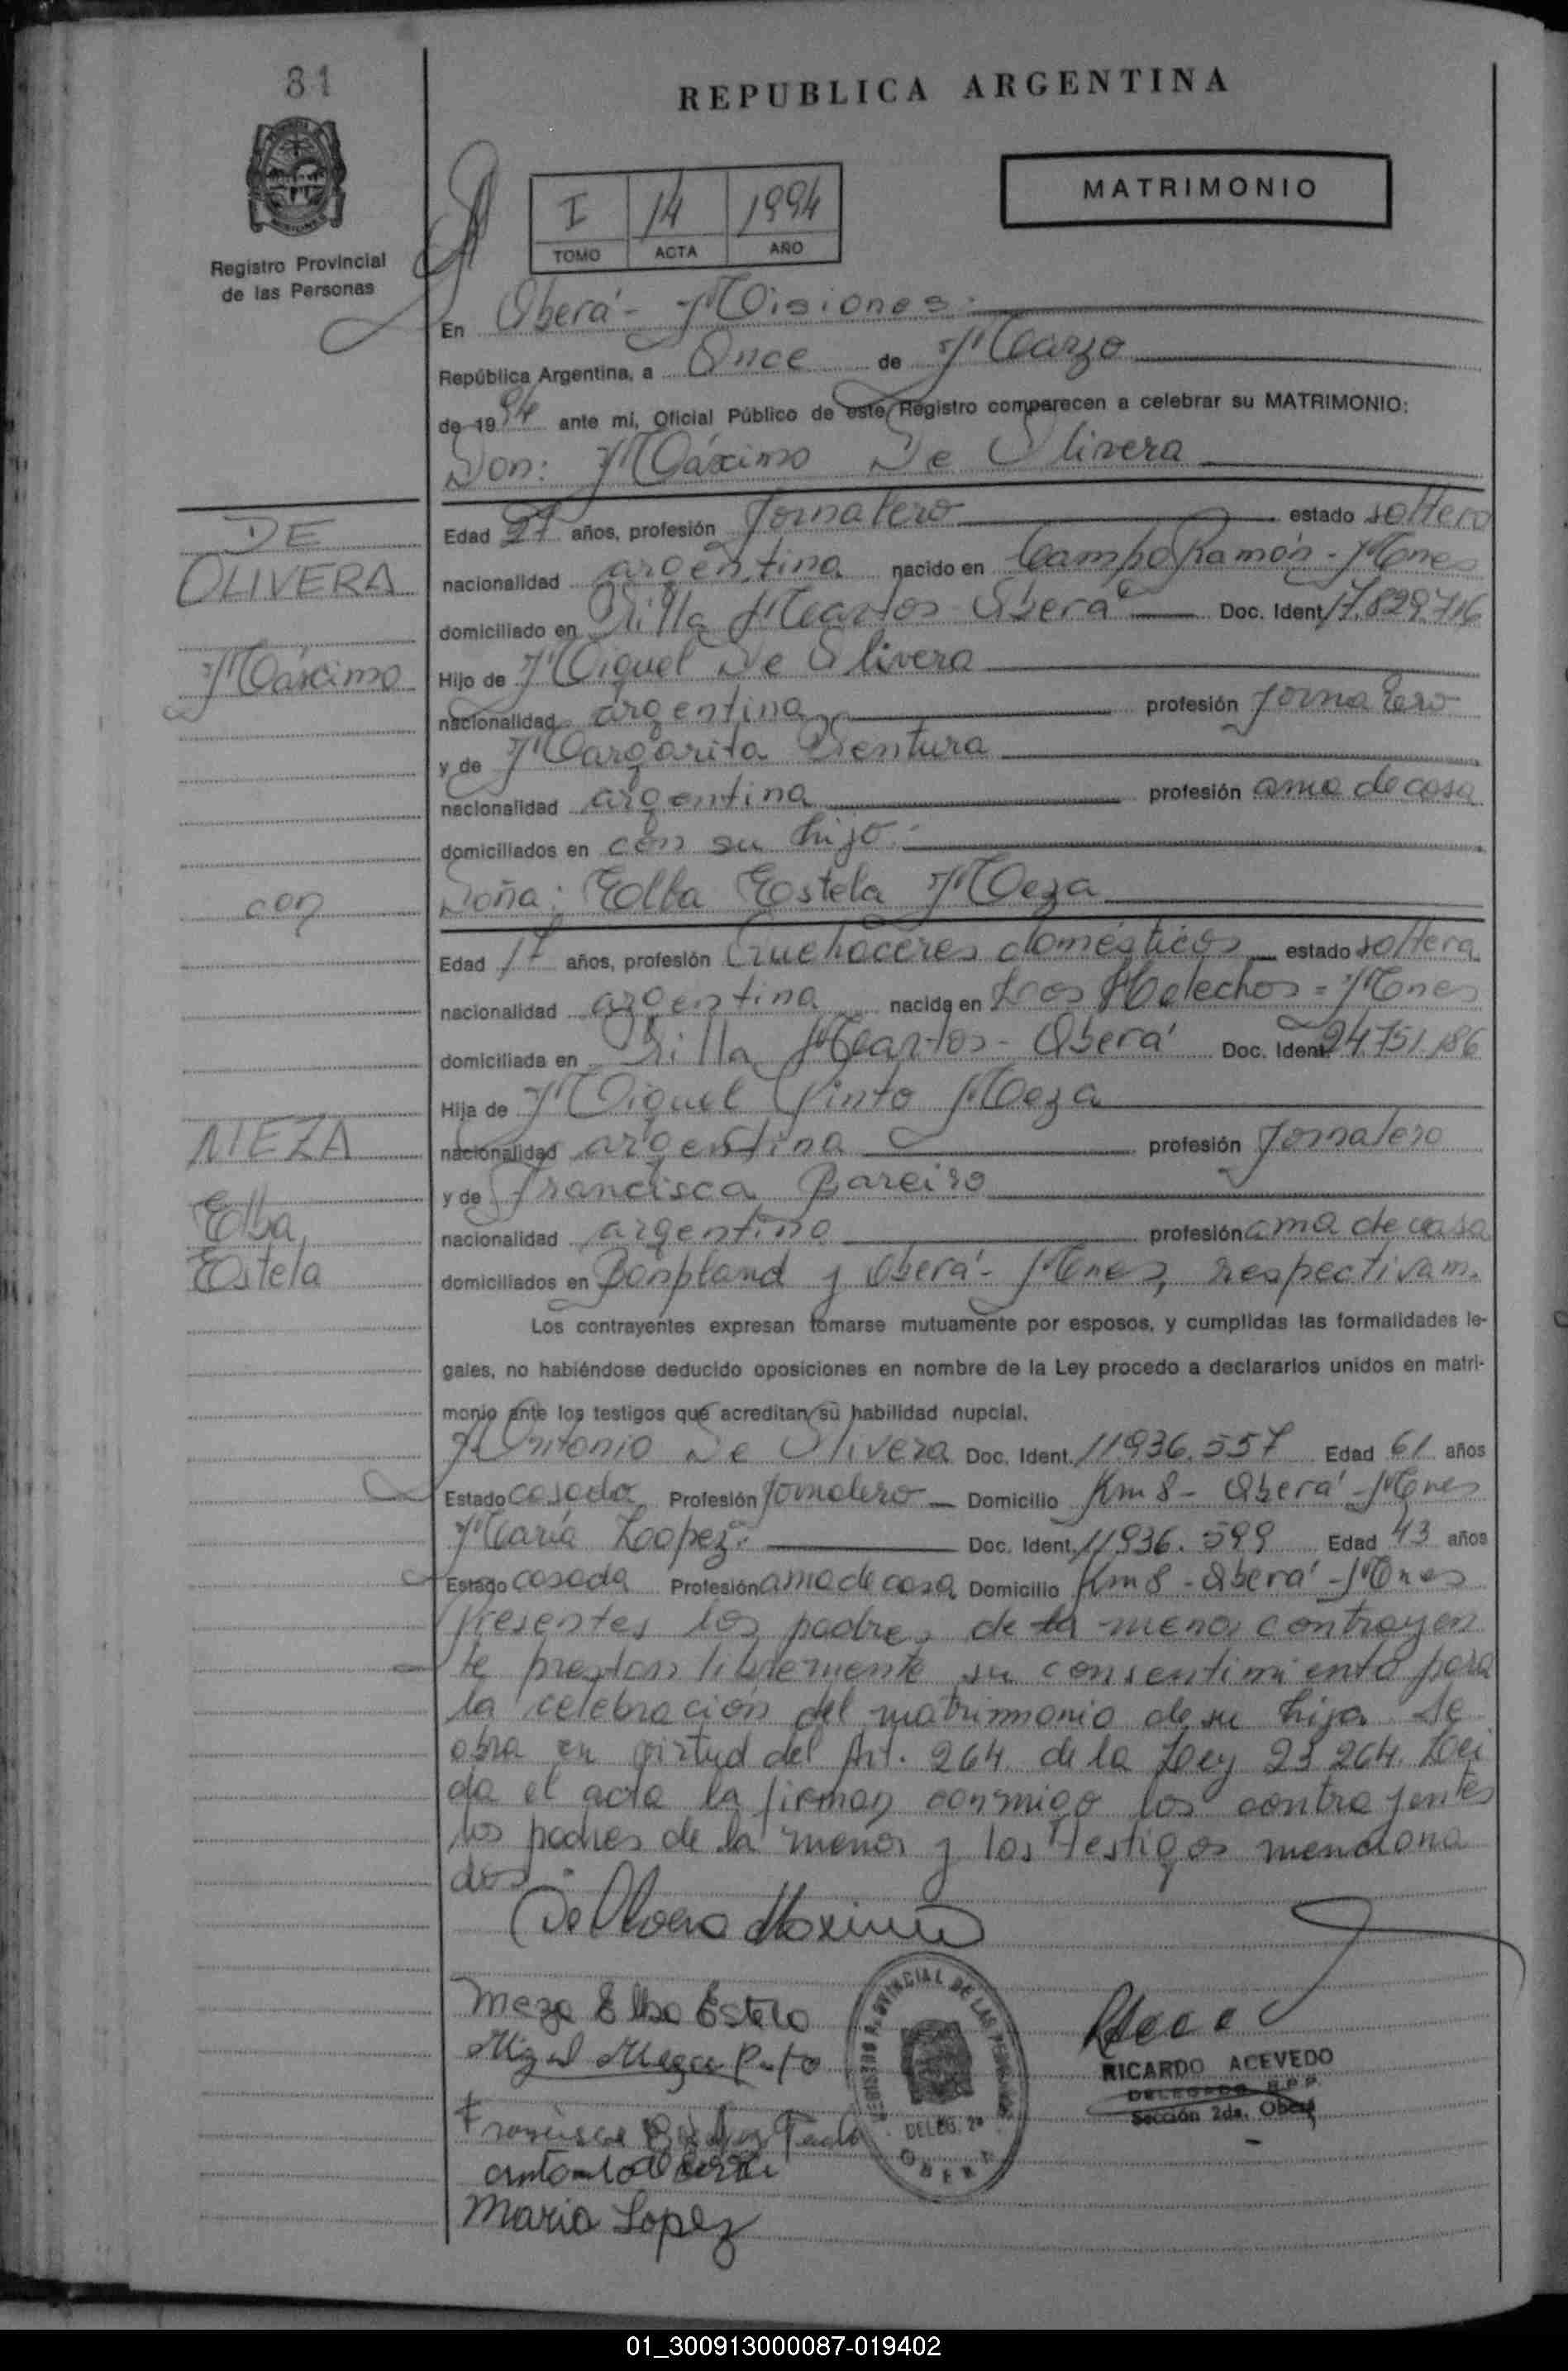 81
REPUBLICA ARGENTINA
MATRIMONIO
I 14 1994
TOMO ACTA AÑO
Registro Provincial
de las Personas
En Oberá - Misiones.
República Argentina, a Once de Marzo
de 1994 ante mi, Oficial Público de este Registro comparecen a celebrar su MATRIMONIO:
Don: Máximo De Olivera
DE
OLIVERA
Máximo
con
MEZA
Elba,
Estela
Edad 27 años, profesión Jornalero estado soltero
nacionalidad argentina nacido en Campo Ramón - Mnes
domiciliado en Villa Martos - Oberá Doc. Ident. 17.829.716
Hijo de Miguel De Olivera
nacionalidad argentina profesión Jornalero
y de Margarita Ventura
nacionalidad argentina profesión ama de casa
domiciliados en con su hijo.
Doña: Elba Estela Meza
Edad 17 años, profesión Quehaceres domésticos estado soltera
nacionalidad argentina nacida en Los Helechos - Mnes
domiciliada en Villa Martos - Oberá Doc. Ident. 24.751.186
Hija de Miguel Pinto Meza
nacionalidad argentina profesión Jornalero
y de Francisca Bareiro
nacionalidad argentina profesión ama de casa
domiciliados en Bonpland y Oberá - Mnes, respectivam.
Los contrayentes expresan tomarse mutuamente por esposos, y cumplidas las formalidades le-
gales, no habiéndose deducido oposiciones en nombre de la Ley procedo a declararlos unidos en matri-
monio ante los testigos que acreditan su habilidad nupcial.
Antonio De Olivera Doc. Ident. 11.936.557 Edad 61 años
Estado casado Profesión Jornalero Domicilio Km 8 - Oberá - Mnes
María Lopez. Doc. Ident. 11.936.599 Edad 43 años
Estado casada Profesión ama de casa Domicilio Km 8 - Oberá - Mnes
Presentes los padres de la menor contrayen
te prestan libremente su consentimiento para
la celebración del matrimonio de su hija. Se
obra en virtud del Art. 264 de la Ley 23.264. Leí
da el acta la firman conmigo los contrayentes
los padres de la menor y los testigos menciona
dos.
De Olivera Maximo
Meza Elba Estela
Miguel Meza Pinto
Francisca
Maria Lopez
REGISTRO PROVINCIAL DE LAS PERSONAS
DELEG. 2ª
OBERA
RICARDO ACEVEDO
DELEGADO R.P.P.
Sección 2da. Oberá
01_300913000087-019402